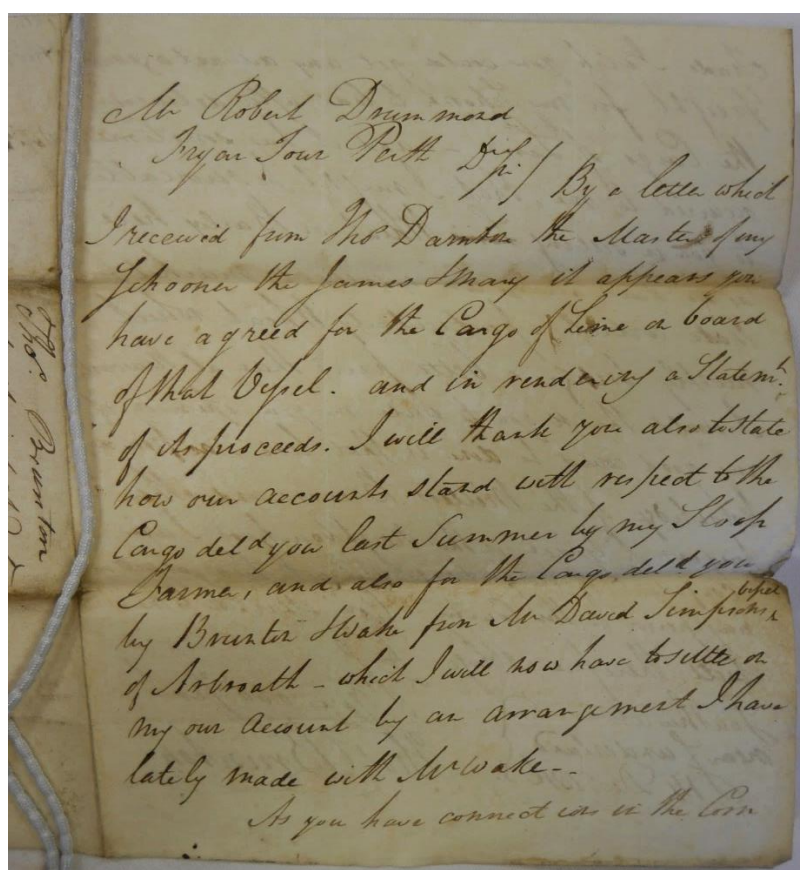 Mr Robert Drummond
Fryar Tour Perth
Sir / By a letter which
I received from Thos Darnton the Master of my
Schooner the James & Mary it appears you
have agreed for the Cargo of Lime on board
of that Vessel. and in rendering a Statemt.
of its proceeds. I will thank you also to state
how our accounts stand with respect to the
Cargo deld you last Summer by my Sloop
Farmer, and also for the Cargo deld you
by Brunton & Wake from Mr David Simpsons Vessel
of Arbroath - which I will now have to settle on
my our Account by an arrangement I have
lately made with Mr Wake--
As you have connections in the Corn
Thos. Brunton